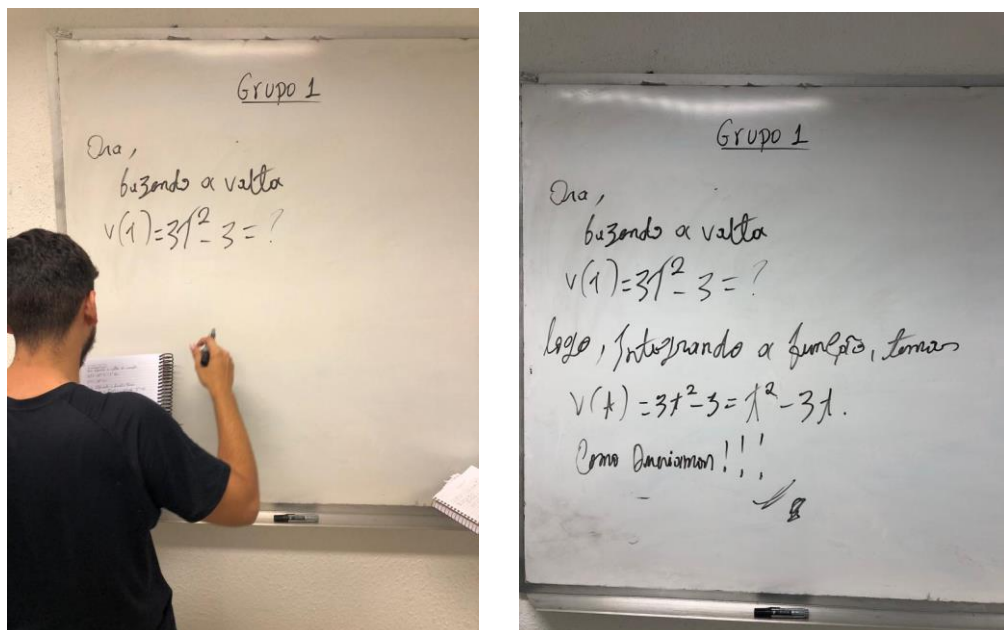 Grupo 1
Ora,
fazendo a volta
v(t)=3t²-3=?
Grupo 1
Ora,
fazendo a volta
v(t)=3t²-3=?
logo, Integrando a função, temos
v(t)=3t²-3=t²-3t.
Como Queríamos!!!